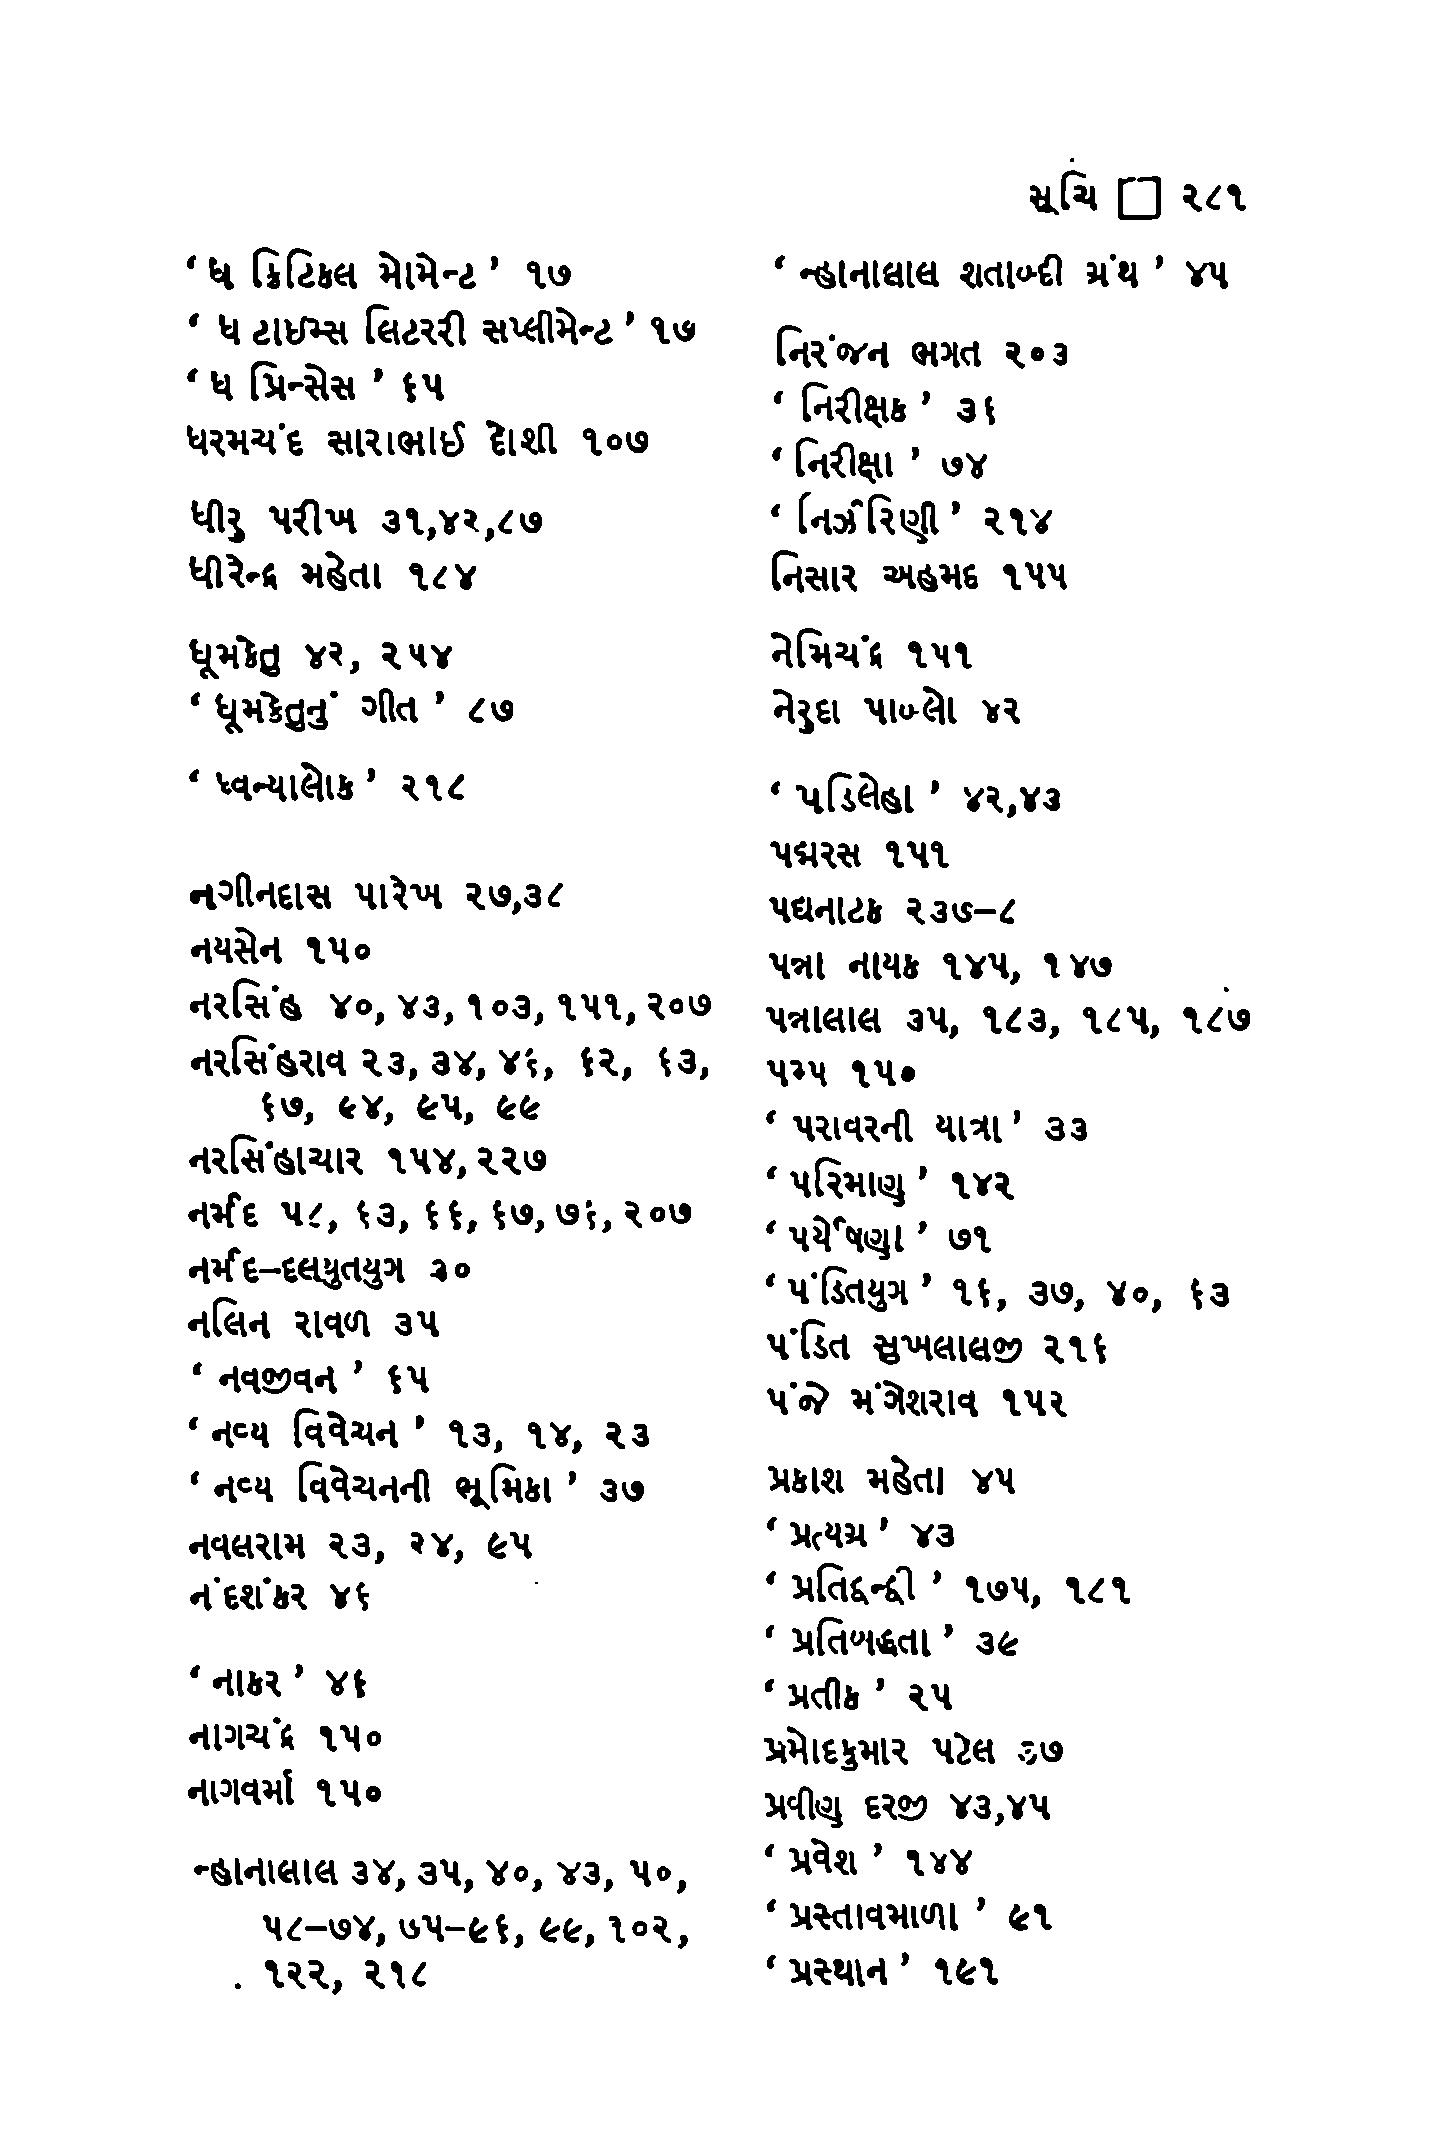 સૂચિ □ ૨૮૧
‘ ધ ક્રિટિકલ મોમેન્ટ ’ ૧૭
‘ ધ ટાઇમ્સ લિટરરી સપ્લીમેન્ટ ’ ૧૭
‘ ધ પ્રિન્સેસ ’ ૬૫
ધરમચંદ સારાભાઈ દોશી ૧૦૭
ધીરુ પરીખ ૩૧,૪૨,૮૭
ધીરેન્દ્ર મહેતા ૧૮૪
ધૂમકેતુ ૪૨, ૨૫૪
‘ ધૂમકેતુનું ગીત ’ ૮૭
‘ ધ્વન્યાલોક ’ ૨૧૮
નગીનદાસ પારેખ ૨૭,૩૮
નયસેન ૧૫૦
નરસિંહ ૪૦, ૪૩, ૧૦૩, ૧૫૧, ૨૦૭
નરસિંહરાવ ૨૩, ૩૪, ૪૬, ૬૨, ૬૩,
૬૭, ૯૪, ૯૫, ૯૯
નરસિંહાચાર ૧૫૪, ૨૨૭
નર્મદ ૫૮, ૬૩, ૬૬, ૬૭, ૭૬, ૨૦૭
નર્મદ–દલપતયુગ ૩૦
નલિન રાવળ ૩૫
‘ નવજીવન ’ ૬૫
‘ નવ્ય વિવેચન ’ ૧૩, ૧૪, ૨૩
‘ નવ્ય વિવેચનની ભૂમિકા ’ ૩૭
નવલરામ ૨૩, ૨૪, ૯૫
નંદશંકર ૪૬
‘ નાકર ’ ૪૬
નાગચંદ્ર ૧૫૦
નાગવર્મા ૧૫૦
ન્હાનાલાલ ૩૪, ૩૫, ૪૦, ૪૩, ૫૦,
૫૮–૭૪, ૭૫–૯૬, ૯૯, ૧૦૨,
૧૨૨, ૨૧૮
‘ ન્હાનાલાલ શતાબ્દી ગ્રંથ ’ ૪૫
નિરંજન ભગત ૨૦૩
‘ નિરીક્ષક ’ ૩૬
‘ નિરીક્ષા ’ ૭૪
‘ નિર્ઝરિણી ’ ૨૧૪
નિસાર અહમદ ૧૫૫
નેમિચંદ્ર ૧૫૧
નેરુદા પાબ્લો ૪૨
‘ પડિલેહા ’ ૪૨,૪૩
પદ્મરસ ૧૫૧
પદ્યનાટક ૨૩૭–૮
પન્ના નાયક ૧૪૫, ૧૪૭
પન્નાલાલ ૩૫, ૧૮૩, ૧૮૫, ૧૮૭
પમ્પ ૧૫૦
‘ પરાવરની યાત્રા ’ ૩૩
‘ પરિમાણ ’ ૧૪૨
‘ પર્યેષણા ’ ૭૧
‘ પંડિતયુગ ’ ૧૬, ૩૭, ૪૦, ૬૩
પંડિત સુખલાલજી ૨૧૬
પંજે મંગેશરાવ ૧૫૨
પ્રકાશ મહેતા ૪૫
‘ પ્રત્યગ્ર ’ ૪૩
‘ પ્રતિદ્વન્દ્વી ’ ૧૭૫, ૧૮૧
‘ પ્રતિબદ્ધતા ’ ૩૯
‘ પ્રતીક ’ ૨૫
પ્રમોદકુમાર પટેલ ૩૭
પ્રવીણ દરજી ૪૩,૪૫
‘ પ્રવેશ ’ ૧૪૪
‘ પ્રસ્તાવમાળા ’ ૯૧
‘ પ્રસ્થાન ’ ૧૯૧